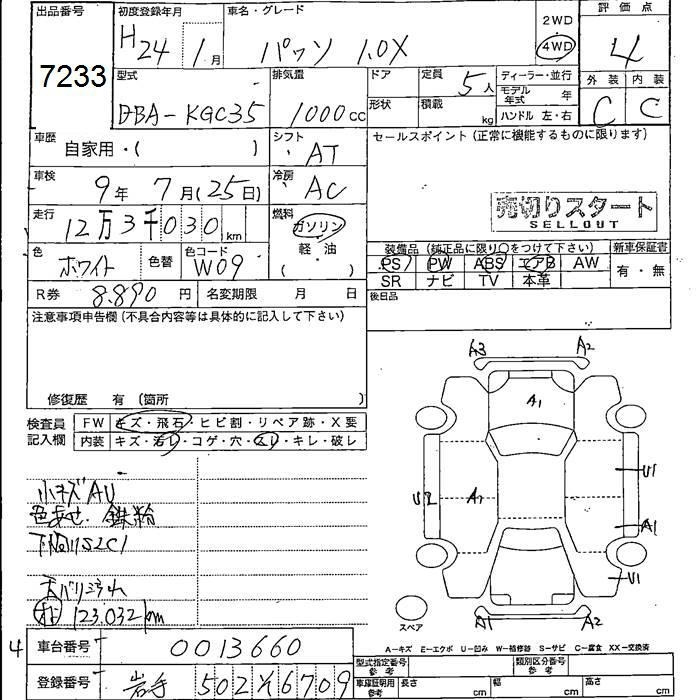 出品番号
7233
初度登録年月
H24 1月
車名・グレード
パッソ 1.0X
2WD
4WD
評価点
4
型式
DBA-KGC35
排気量
1000cc
ドア
形状
定員 5人
積載 kg
ディーラー・並行
モデル年式 年
ハンドル 左・右
外装 内装
C C
車歴
自家用・( )
シフト
AT
セールスポイント(正常に機能するものに限ります)
車検
9年 7月(25日)
冷房
AC
売切りスタート
SELLOUT
走行
12万3千030km
燃料
ガソリン
軽・油
( )
色
ホワイト
色替
色コード
W09
装備品(純正品に限り○をつけて下さい)
PS PW ABS エアB AW
SR ナビ TV 本革
新車保証書
有・無
R券 8.890円
名変期限 月 日
後日品
注意事項申告欄(不具合内容等は具体的に記入して下さい)
修復歴 有(箇所 )
検査員記入欄
FW キズ・飛石・ヒビ割・リペア跡・X要
内装 キズ・汚レ・コゲ・穴・スレ・キレ・破レ
小キズAU
色あせ
123.032km
A3 A2
A1
U2
U1
A1
U1
A1 A2
スペア
A-キズ E-エクボ U-凹み W-補修跡 S-サビ C-腐食 XX-交換済
4
車台番号 0013660
登録番号 岩手 502 そ 6709
型式指定番号 参考
類別区分番号 参考
車庫証明用 参考
長さ cm
幅 cm
高さ cm